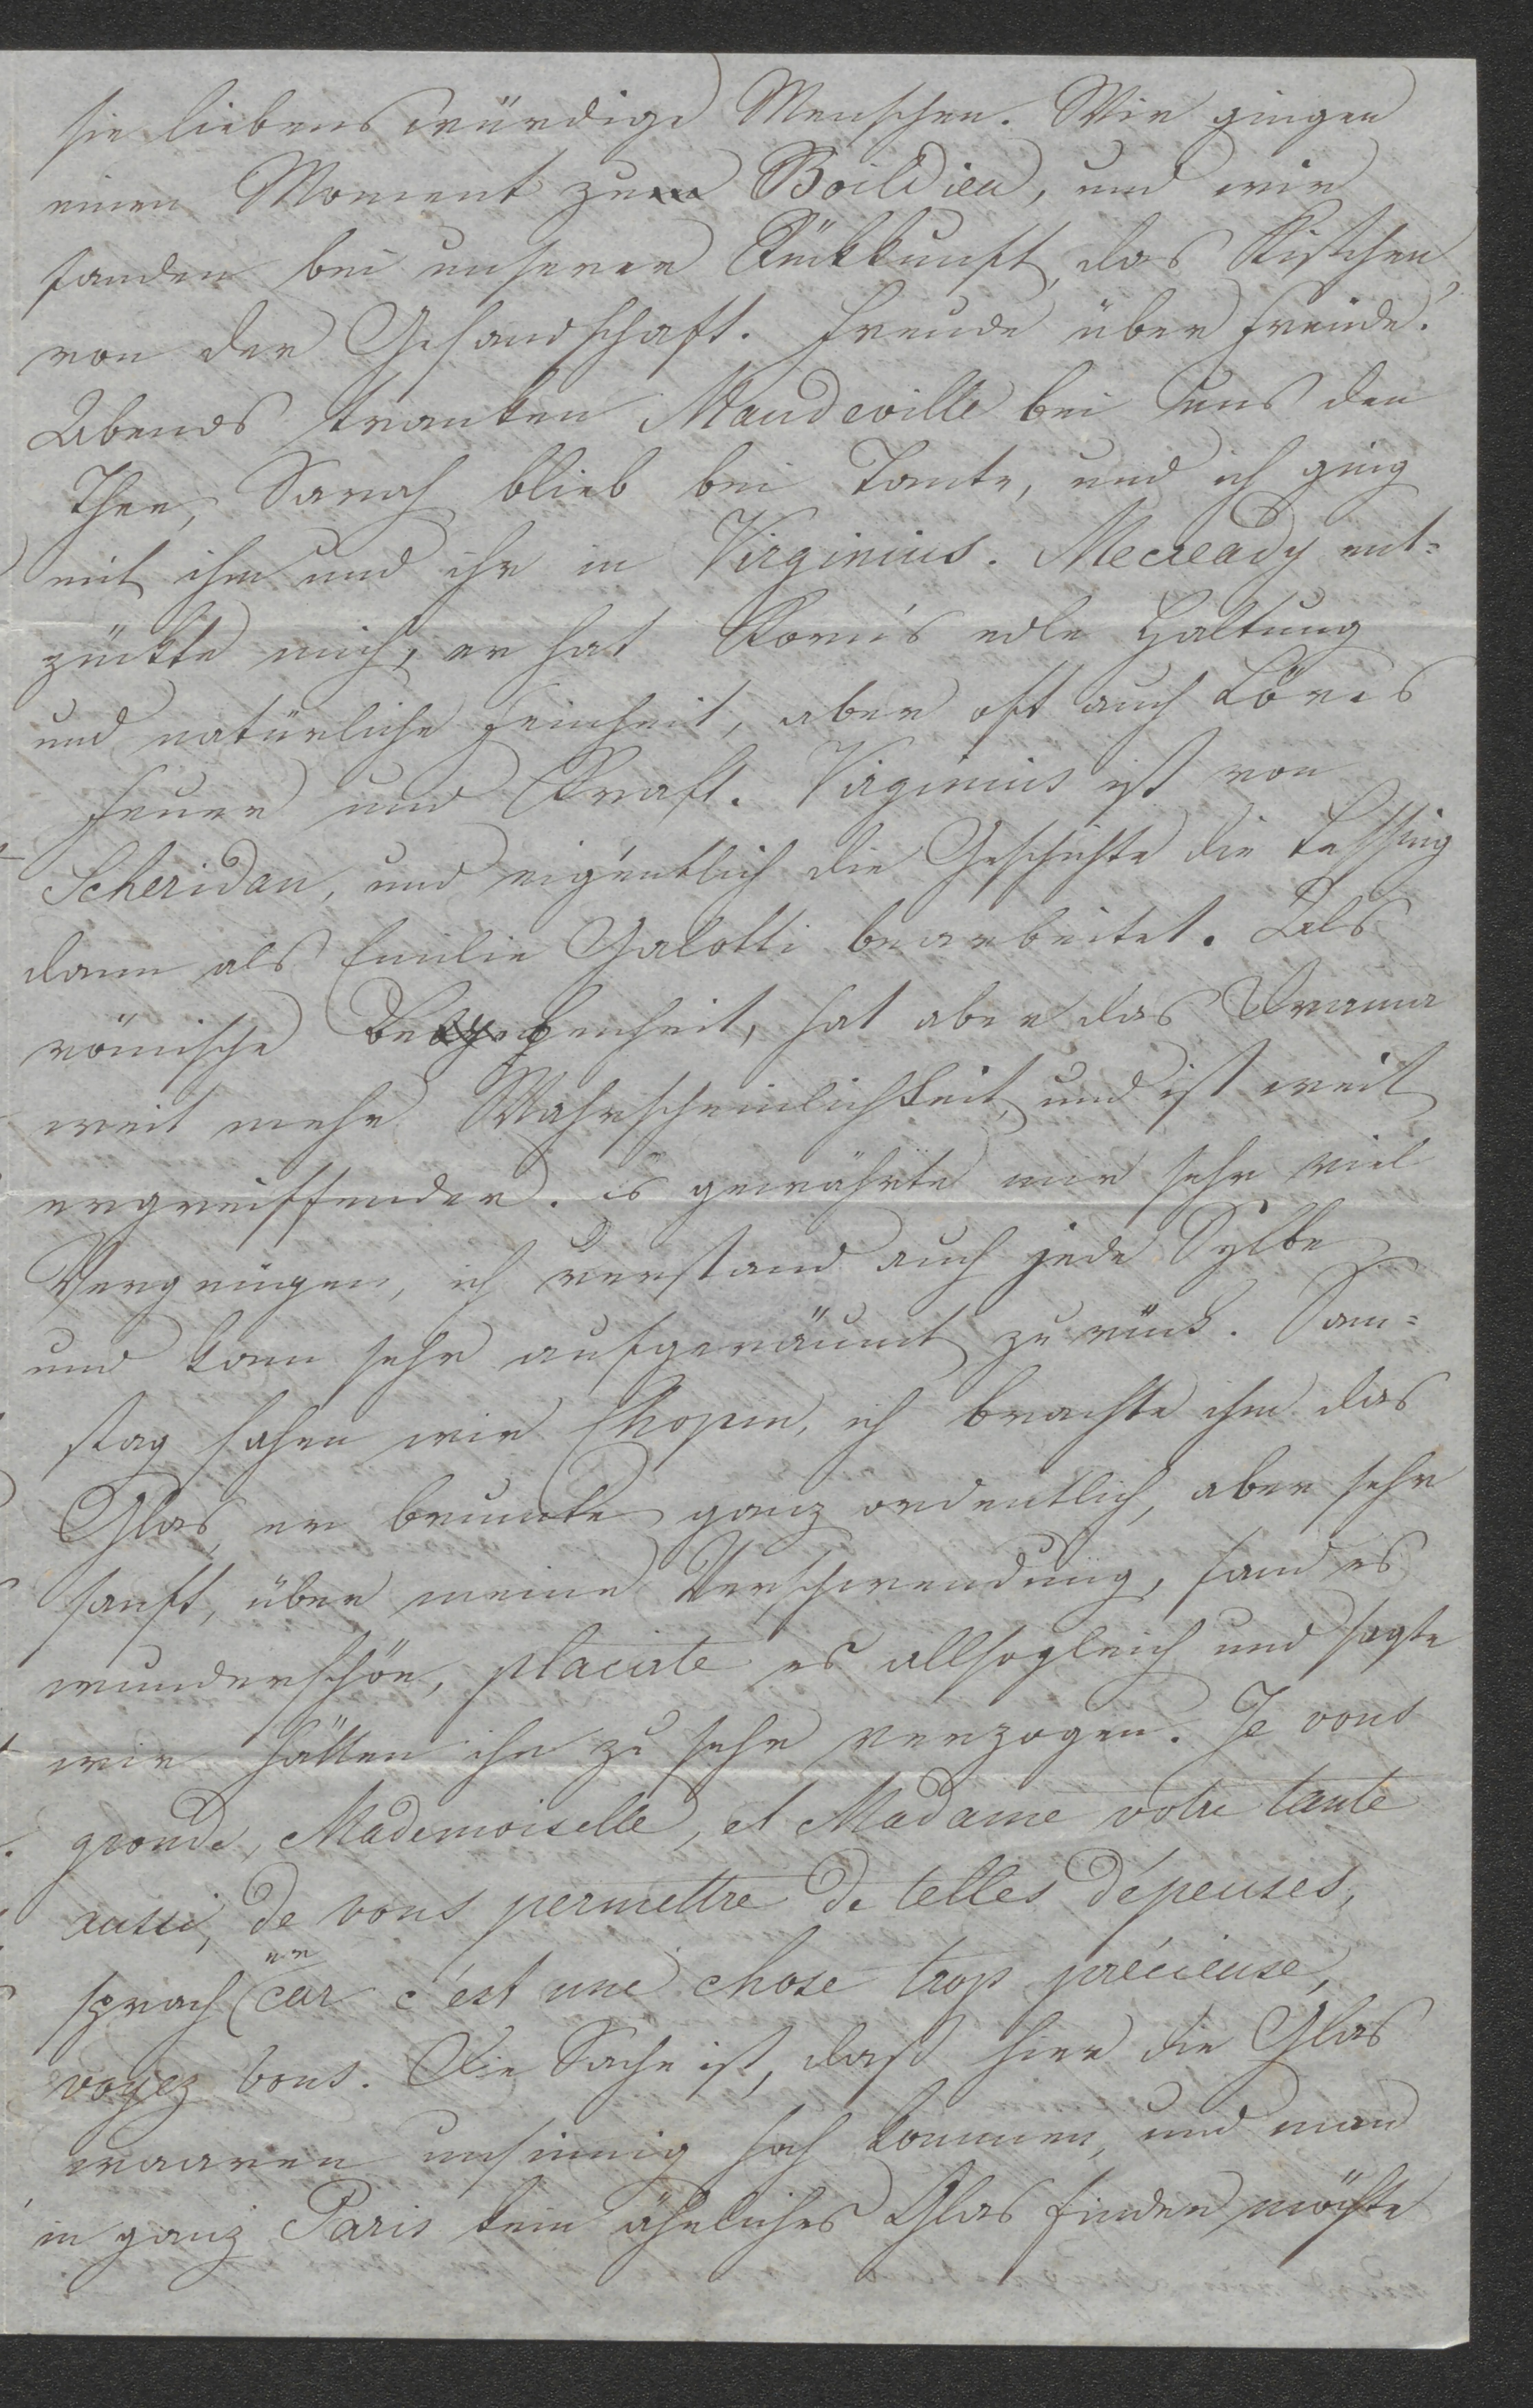 sie liebenswürdige Menschen. Wir gingen
einen Moment zu Boildieu, und wir
fanden bei unserer Rückkunft, das Kistchen
von der Gesandschaft. Freude über Freude!
Abends tranken Maudeville bei uns den
Thee, Sarah blieb bei Tante, und ich ging
mit ihm und ihr in Virginius. Mecready ent=
zückte mich, er hat Korn's edle Haltung
und natürliche Feinheit, aber oft auch Löves
Feuer und Kraft. Virginius ist von
Scheridan, und eigentlich die Geschichte die Lessing
dann als Emilie Galotti bearbeitet. Als
römische Begebenheit, hat aber das Drama
weit mehr Wahrscheinlichkeit, und ist weit
ergreiffender. es gewährte mir sehr viel
Vergnügen, ich verstand auch jede Sylbe
und kam sehr aufgeräumt zurück. Sam=
stag sahen wir Chopin, ich brachte ihm das
Glas, er brumte ganz ordentlich, aber sehr
sanft, über meine Verschwendung, fand es
wunderschön, placirte es allsogleich und sagte
wir hätten ihn zu sehr verzogen. Je vous
gronde, Mademoiselle, et Madame votre tante
aussi, de vous permettre de telles dépenses,
sprach er car c'est une chose trop précieuse,
voyez vous. Die Sache ist, daß hier die Glas
waaren unsinnig hoch kommen, und man
in ganz Paris kein ähnliches Glas finden möchte